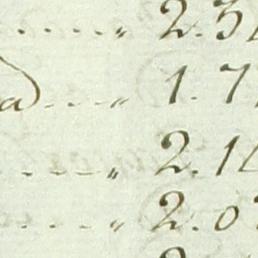 ..... „ 2.3
a .... „ 1.7
.... „ 2.1
.... „ 2.0
2